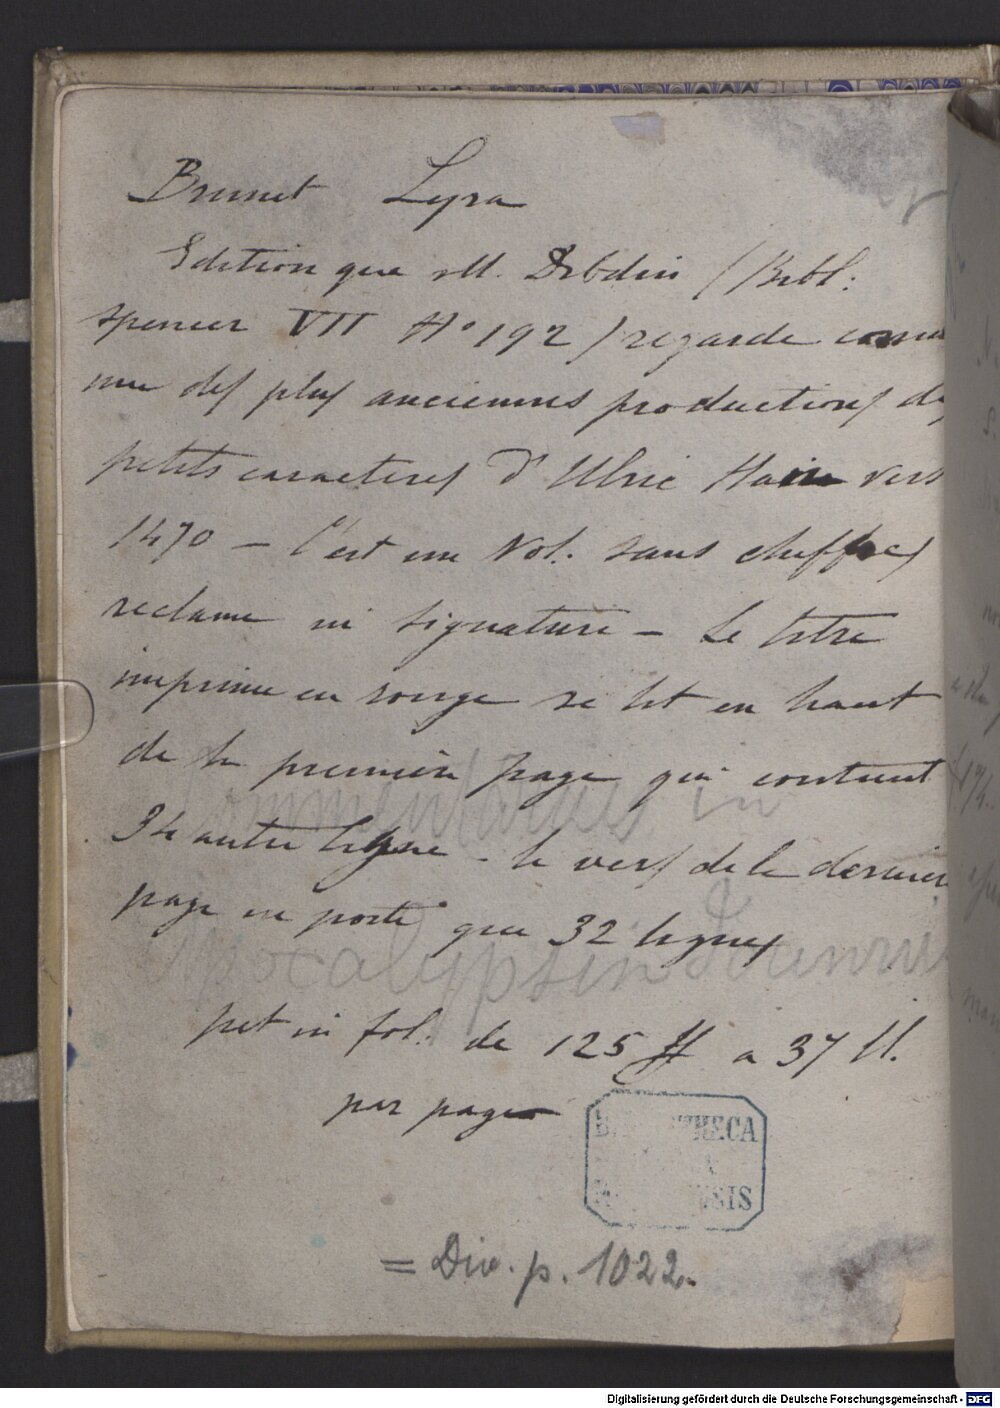 Brunet Lyra
Edition que M. Dibdin (Bibl:
spencer VII N° 192) regarde comme
une des plus anciennes productions des
petits caracteres d'Ulric Hain vers
1470 - C'est un Vol. sans chiffres
reclame ni signature - Le titre
imprimé en rouge se lit en haut
de la premiere page qui contient
34 autre ligne - le vers de la derniere
page ne porte que 32 lignes
Commentarius in
Apocalypsin Joannis
pet in fol. de 125 ff a 37 ll.
par page
BIBLIOTHECA
= Div. p. 1022.
Digitalisierung gefördert durch die Deutsche Forschungsgemeinschaft - DFG